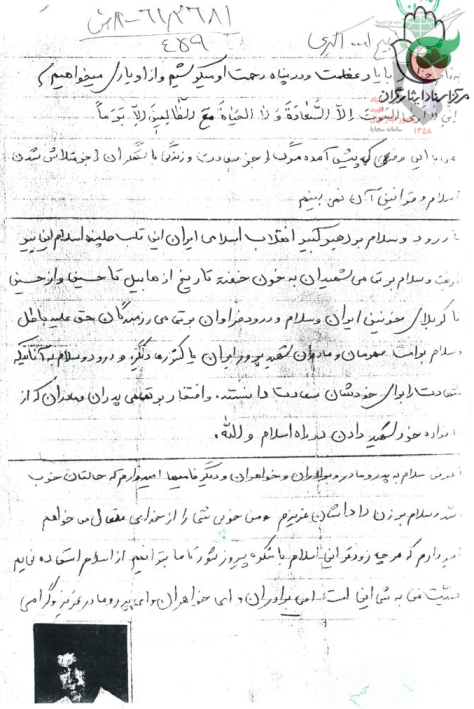 ۶۱/۲۶۸۱-ش
۴۵۹
مرکز اسناد ایثارگران
سامانه سجایا
۱۳۵۸
با عظمت و در پناه رحمت او میکوشیم و از او یاری میخواهیم
الموت الا السعادة و لا الحیاة مع الظالمین الا برما
این وضعی که پیش آمده مرگ را جز سعادت و زندگی با ستمگران را جز متلاشی شدن
اسلام و قوانین آن نمی بینم
با درود و سلام بر رهبر کبیر انقلاب اسلامی ایران این قلب طپنده اسلام این پیر
و سلام بر تمامی شهیدان به خون خفته تاریخ از هابیل تا حسین و از حسین
تا کربلای خونین ایران و سلام و درود فراوان بر تمامی رزمندگان حق علیه باطل
و سلام بر امت قهرمان و مادران شهید پرور ایران یا کشورهای دیگر و درود و سلام به آنانیکه
شهادت را برای خودشان سعادت دانستند. و افتخار بر تمامی پدران و مادران که از
خانواده خود شهید دادن در راه اسلام و الله.
سلام به پدر و مادر و برادران و خواهران و دیگر فامیلها امیدوارم که حالتان خوب
باشد و سلام بر زن داداشان عزیزم و من خوبی شما را از خدای متعال می خواهم
امیدوارم که هر چه زودتر این اسلام با شکوه پیروز شود تا ما بتوانیم از اسلام استفاده نمایم
وصیت من به شما این است: ای برادران و ای خواهران و ای پدر و مادر عزیز و گرامی